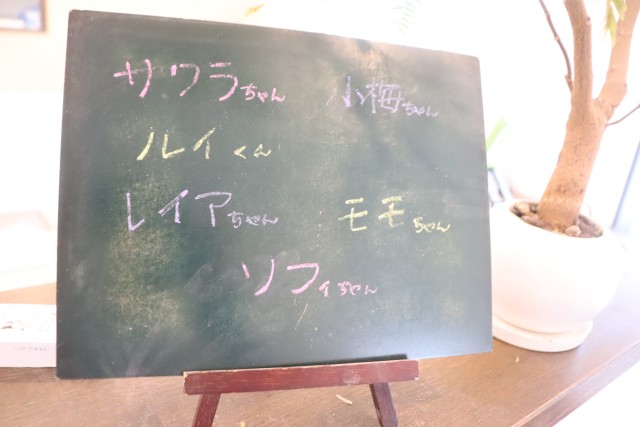 サワラちゃん 小梅ちゃん
ルイくん
レイアちゃん モモちゃん
ソフィちゃん